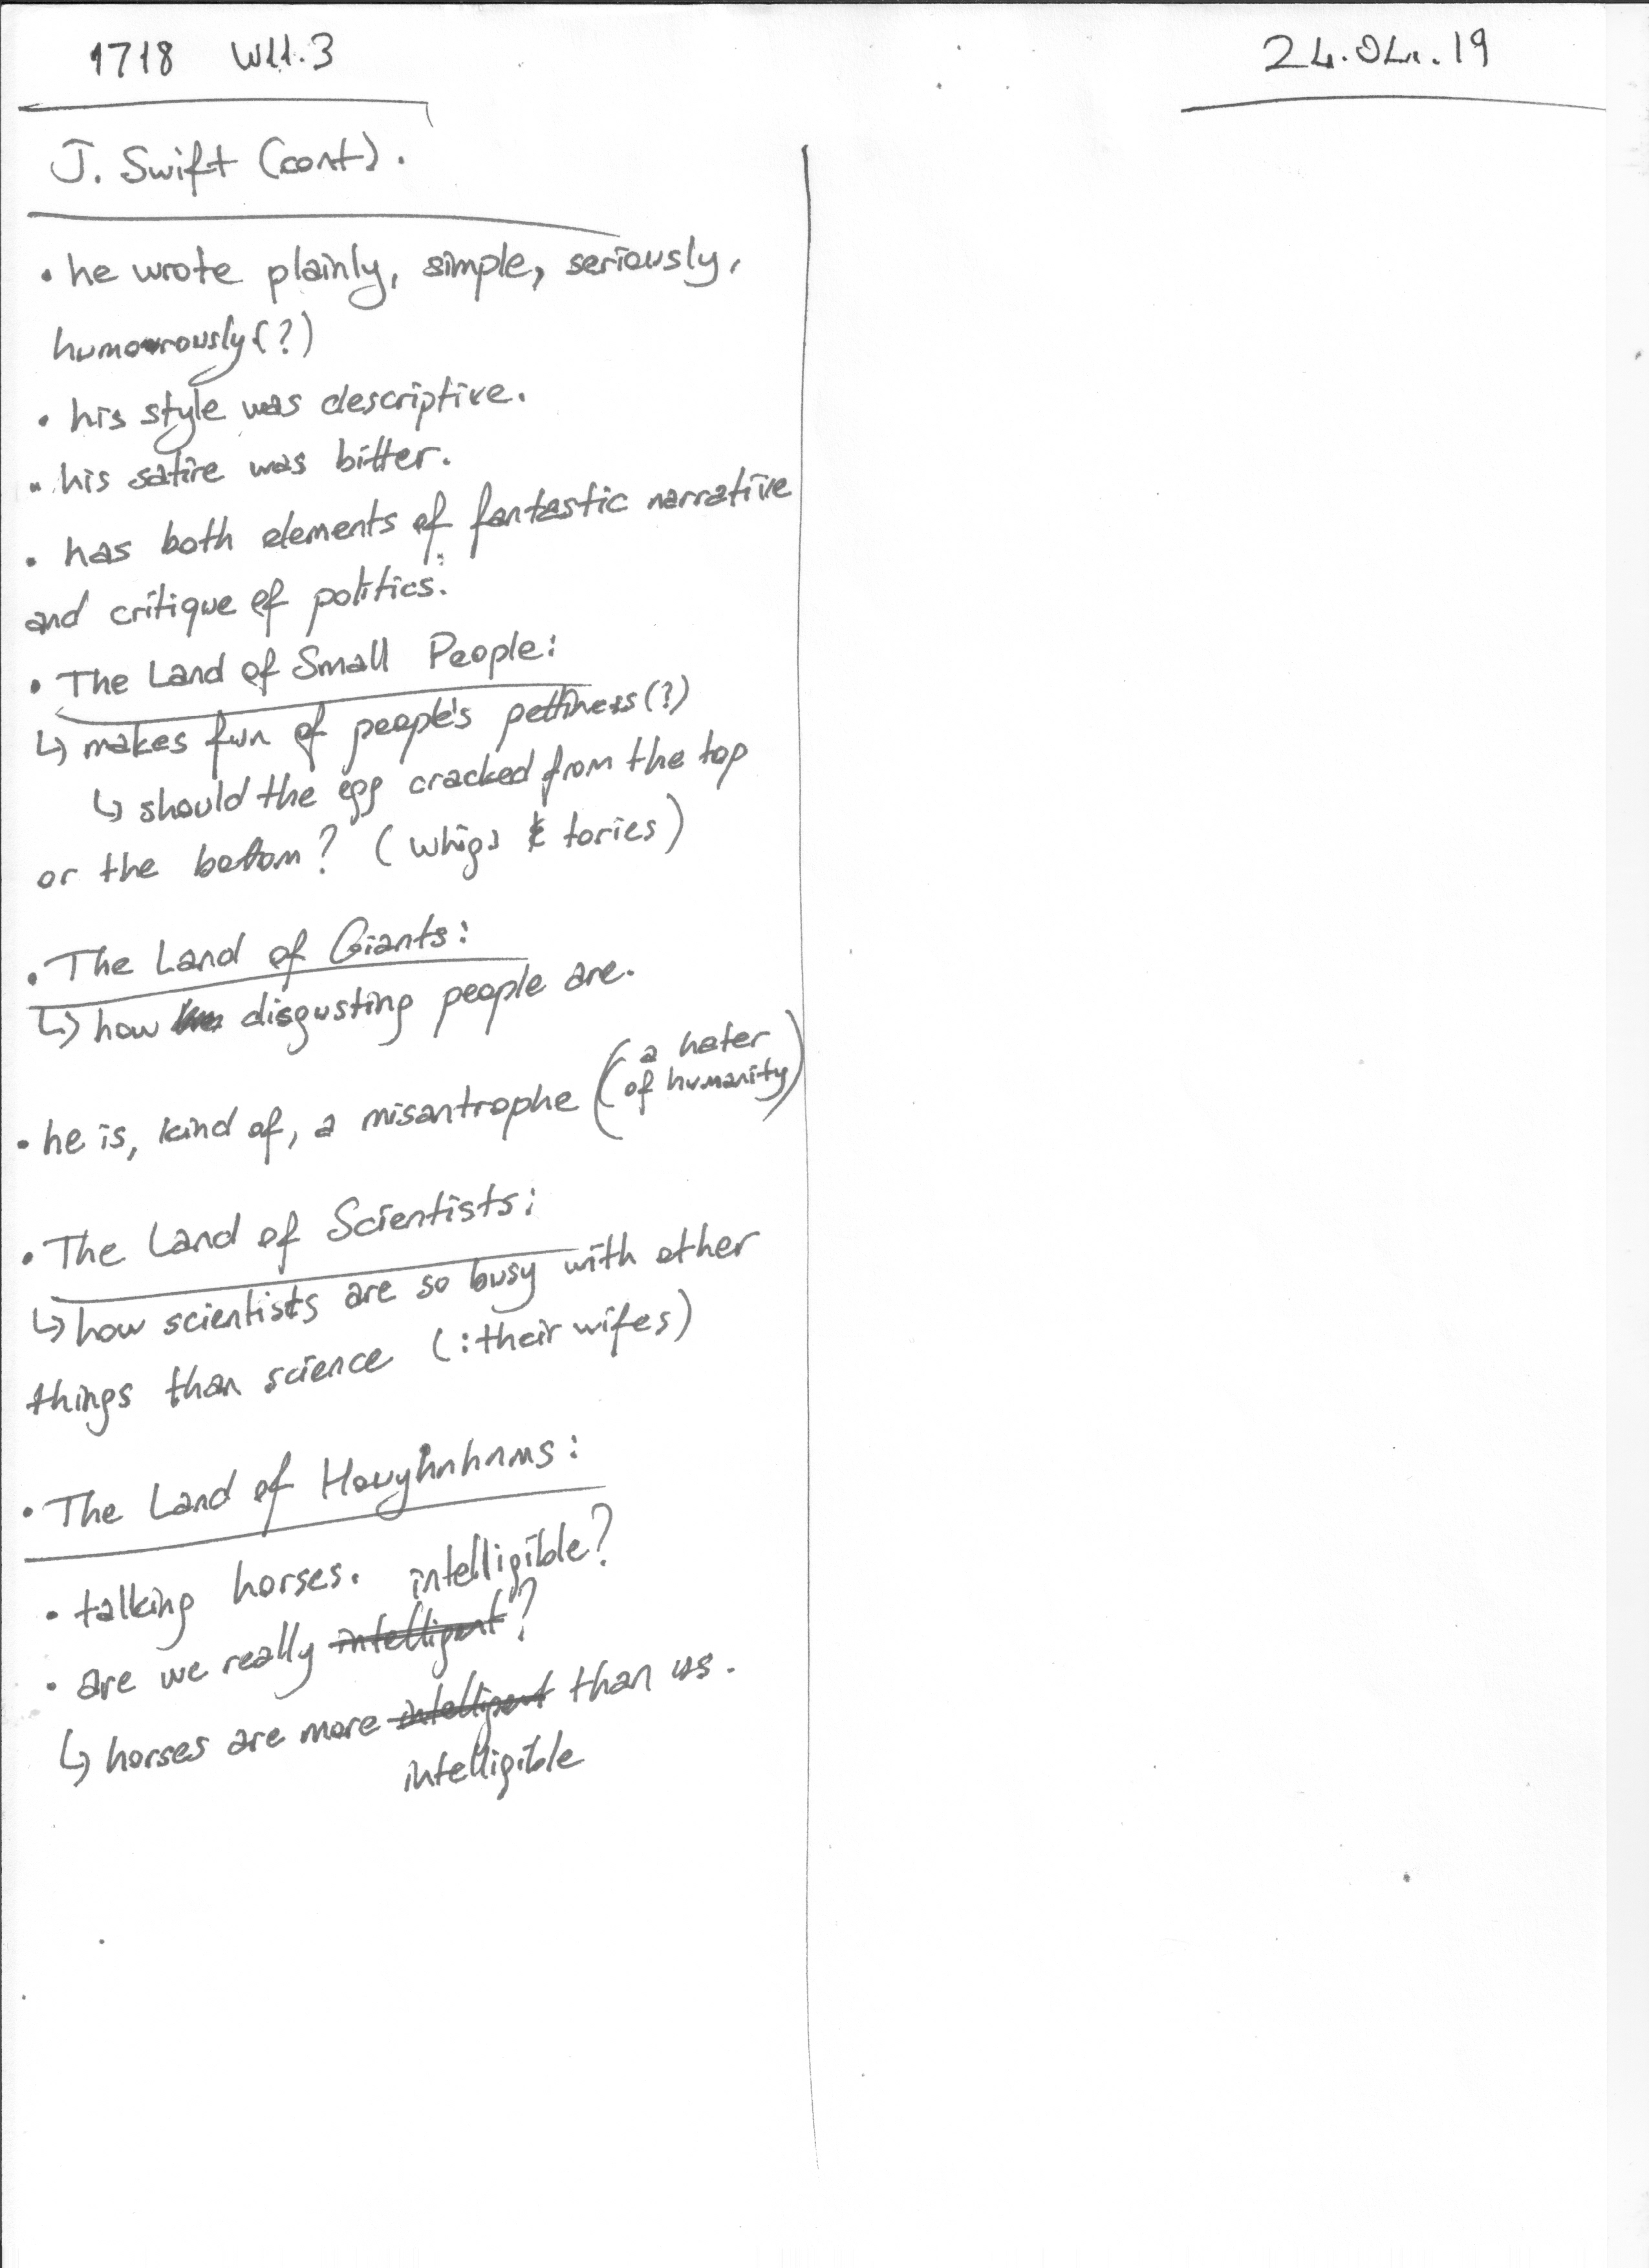 1718 W11.3
24.04.19
J. Swift (cont).
• he wrote plainly, simple, seriously,
humorously(?)
• his style was descriptive.
• his satire was bitter.
• has both elements of fantastic narrative
and critique of politics.
• The Land of Small People:
↳ makes fun of people's pettiness(?)
↳ should the egg cracked from the top
or the bottom? (whigs & tories)
• The Land of Giants:
↳ how disgusting people are.
• he is, kind of, a misantrophe (a hater
of humanity)
• The Land of Scientists:
↳ how scientists are so busy with other
things than science (: their wifes)
• The Land of Houyhnhnms:
• talking horses. intelligible?
• are we really intelligent?
↳ horses are more intelligent than us.
intelligible